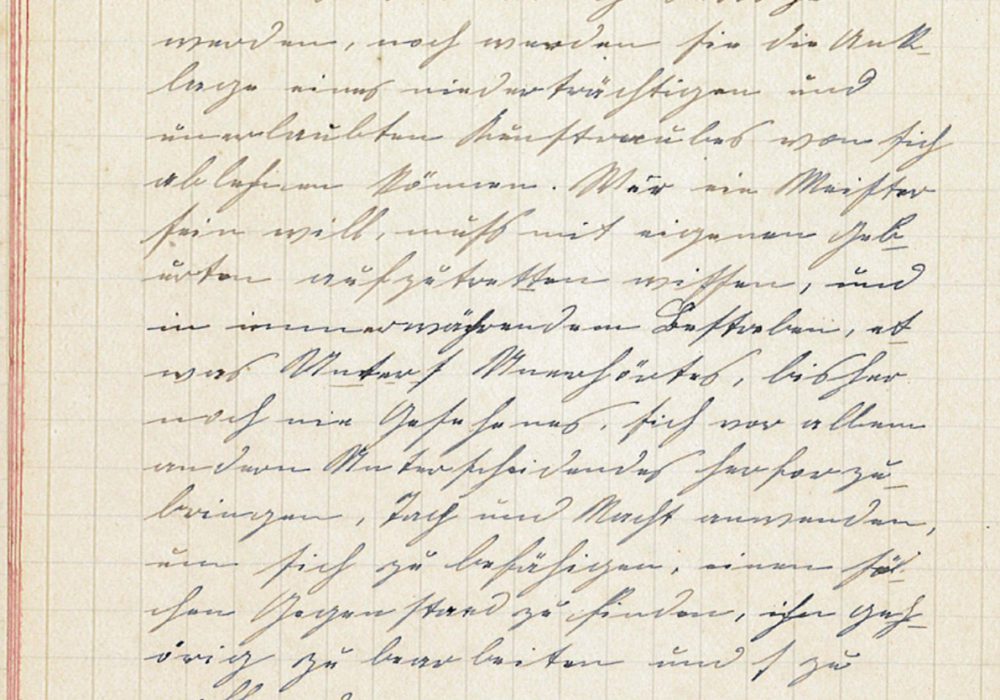 werden, noch werden sie die Ank-
lage eines niederträchtigen und
unerlaubten Kunstraubes von sich
ablehnen können. Wer ein Meister
sein will, muß mit eigenen Geb-
urten aufzutretten wissen, und
in immerwährendem Bestreben, et-
was Unerhörtes, bisher
noch nie Gesehenes, sich vor allem
andern Unterscheidendes herforzu-
bringen, Tach und Nacht anwenden,
um sich zu befähigen, einen sol-
chen Gegenstand zu finden, ihn geh-
örig zu bearbeiten und zu